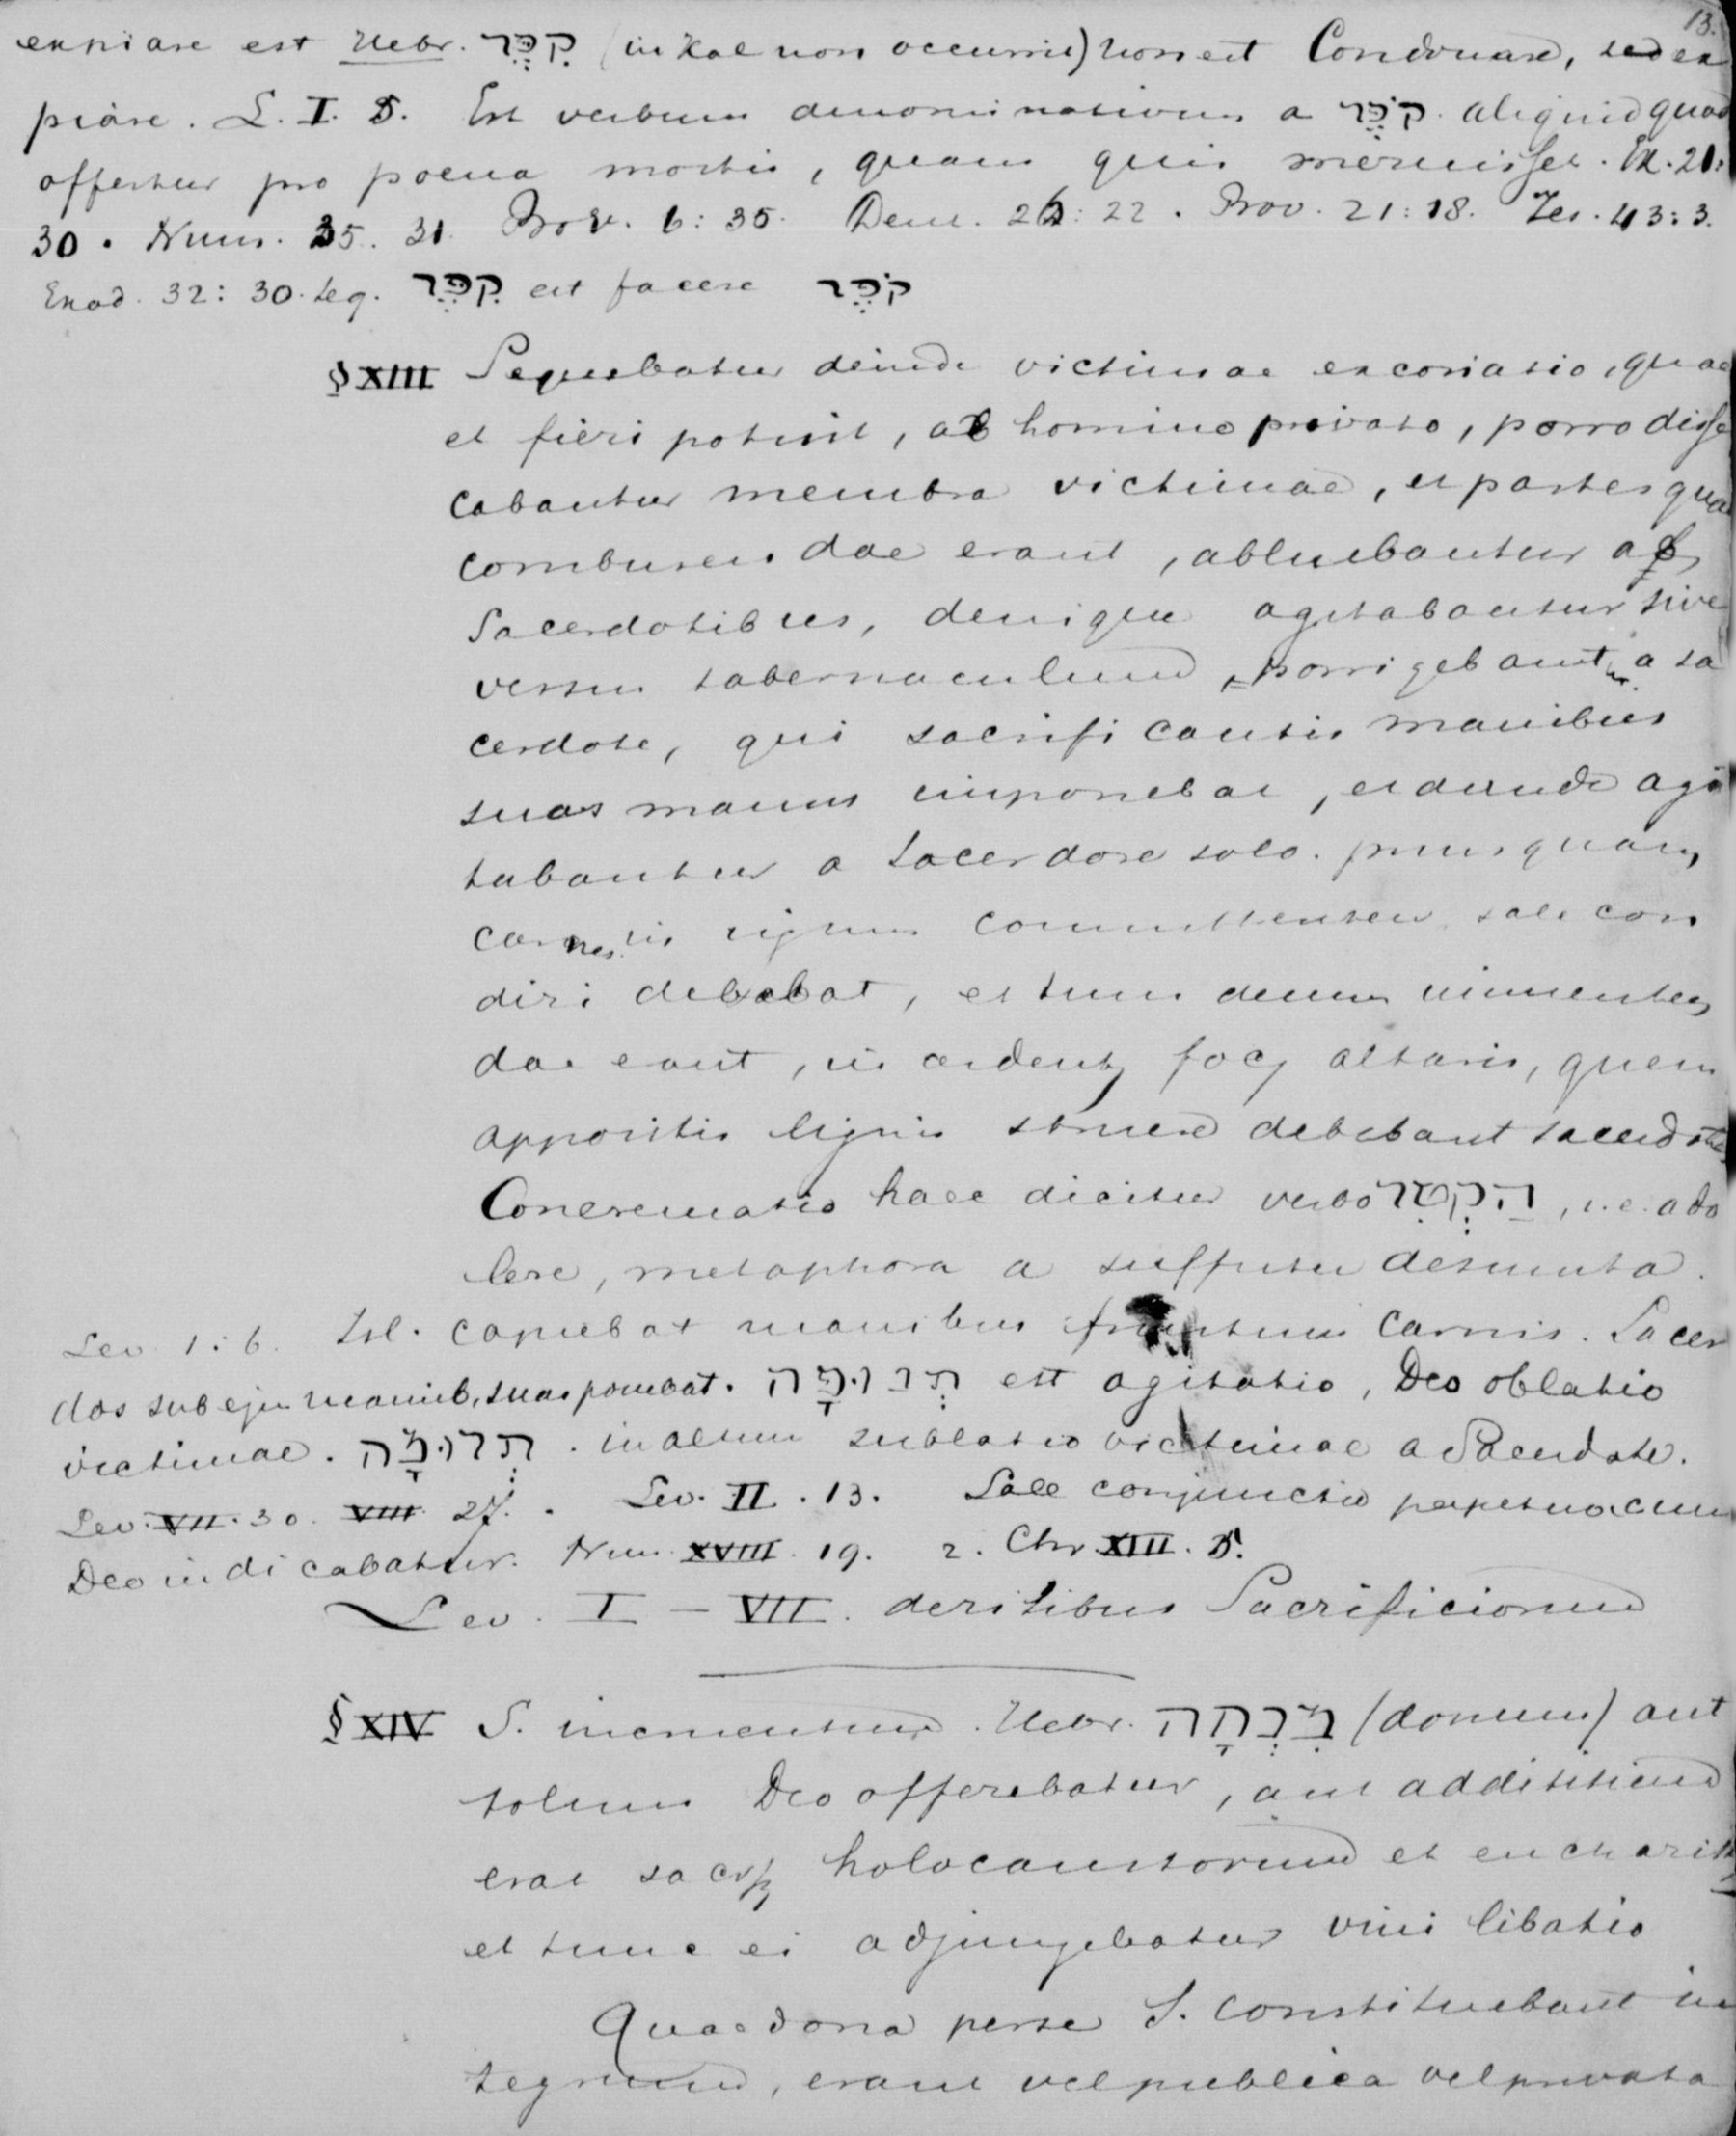 13.
expiare est Hebr. קִפֶּר (in Kal non occurrit) non est Condonare, sed ex
piare. L. I. 5. Est verbum denominativum a קֹפֶּר. aliquid quod
offertur pro poena mortis, quam quis meruisset. Ex. 21:
30. Num. 35. 31. Prov. 6:35. Deut. 22:22. Prov. 21:18. Jes. 43:3.
Exod. 32:30. seq. קִפֶּר est facere קֹפֶּר
§ XIII Sequebatur deinde victimae excoriatio, quae
et fieri potuit, ab homine privato, porro disse
cabantur membra victimae, et partes quae
comburendae erant, abluebantur a
Sacerdotibus, denique agitabantur sive
versus tabernaculum, porrigebantur a sa
cerdote, qui sacrificantis manibus
suas manus imponebat, et deinde agi
tabantur a Sacerdote solo. priusquam
carnes in ignem committentur sale con
diri debebat, et tum demum
dae erant, in ardenti foci altaris, quem
appositis lignis struere debebant sacerdotes
Concrematio haec dicitur verbo הַקְטִר, i.e. ado
lere, metaphora a suffitu desumta.
Lev. 1:6. Isl. capiebat manibus carnis. Sacer
dos sub ejus manib, suas ponebat. תְּנוּפָה est agitatio, Deo oblatio
victimae. תְּרוּמָה. in altum sublatio victimae a Sacerdote.
Lev. VII. 30. VIII. 27. Lev. II. 13. Sale conjunctio perpetua cum
Deo indicabatur. Num. XVIII. 19. 2. Chr. XIII. 5.
Lev. I – VII. de ritibus Sacrificiorum
§ XIV S. incruentum. Hebr. מִנְחָה (donum) aut
solum Deo offerebatur, aut addititium
erat sacrif holocaustorum et eucharist
et tunc ei adjungebatur vini libatio
Quae dona per se S. constituebant in
tegrum, erant vel publica vel privata